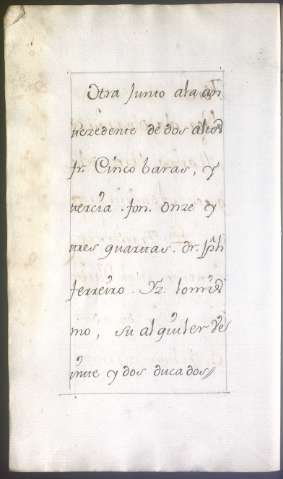 Otra Junto a la an
tezedente de dos altos
fr. Cinco baras, y
tercia. fon. Onze y
tres quartas. dr. Jph
ferreiro. Yz. lo mis
mo, su alquiler Ve
inte y dos ducados//